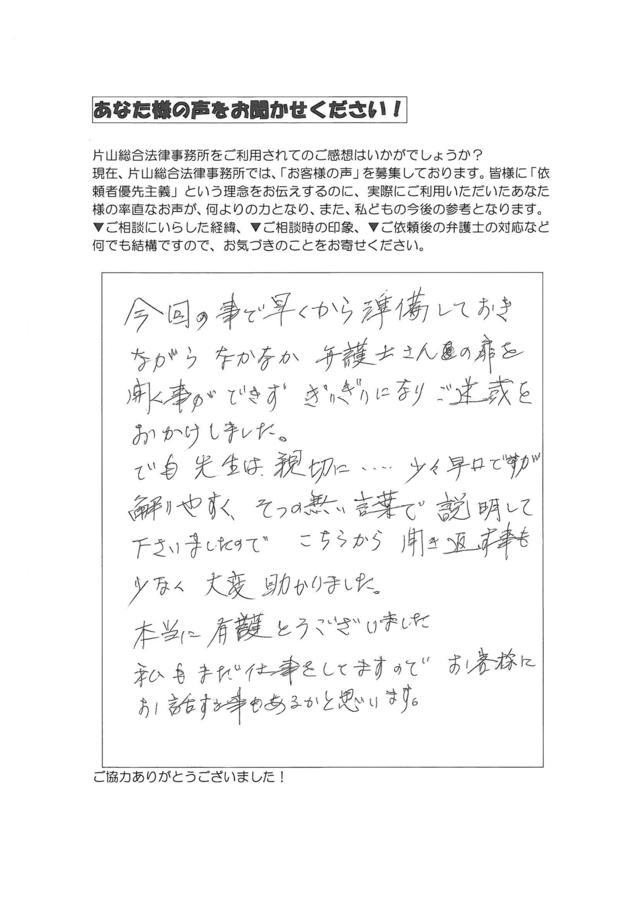 あなた様の声をお聞かせください！
片山総合法律事務所をご利用されてのご感想はいかがでしょうか？
現在、片山総合法律事務所では、「お客様の声」を募集しております。皆様に「依
頼者優先主義」という理念をお伝えするのに、実際にご利用いただいたあなた
様の率直なお声が、何よりの力となり、また、私どもの今後の参考となります。
▼ご相談にいらした経緯、▼ご相談時の印象、▼ご依頼後の弁護士の対応など
何でも結構ですので、お気づきのことをお寄せください。
今回の事で早くから準備しておき
ながら なかなか 弁護士さんの扉を
開く事ができず ぎりぎりになりご迷惑を
おかけしました。
でも 先生は 親切に‥‥ 少々早口ですが
解りやすく、そつの無い言葉で 説明して
下さいましたので こちらから 聞き返す事も
少なく 大変 助かりました。
本当に 有護とうございました
私もまだ仕事をしてますので お客様に
お話する事もあるかと思います。
ご協力ありがとうございました！